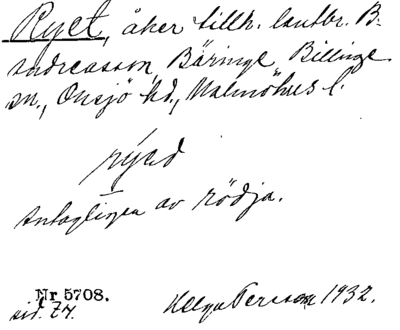 Ryet, åker tillh. lantbr. B.
Andreasson, Bäringe, Billinge
sn., Onsjö hd., Malmöhus l.
rýəd
Antagligen av rödja.
Nr 5708.
sid. 74.
Helga Persson 1932.